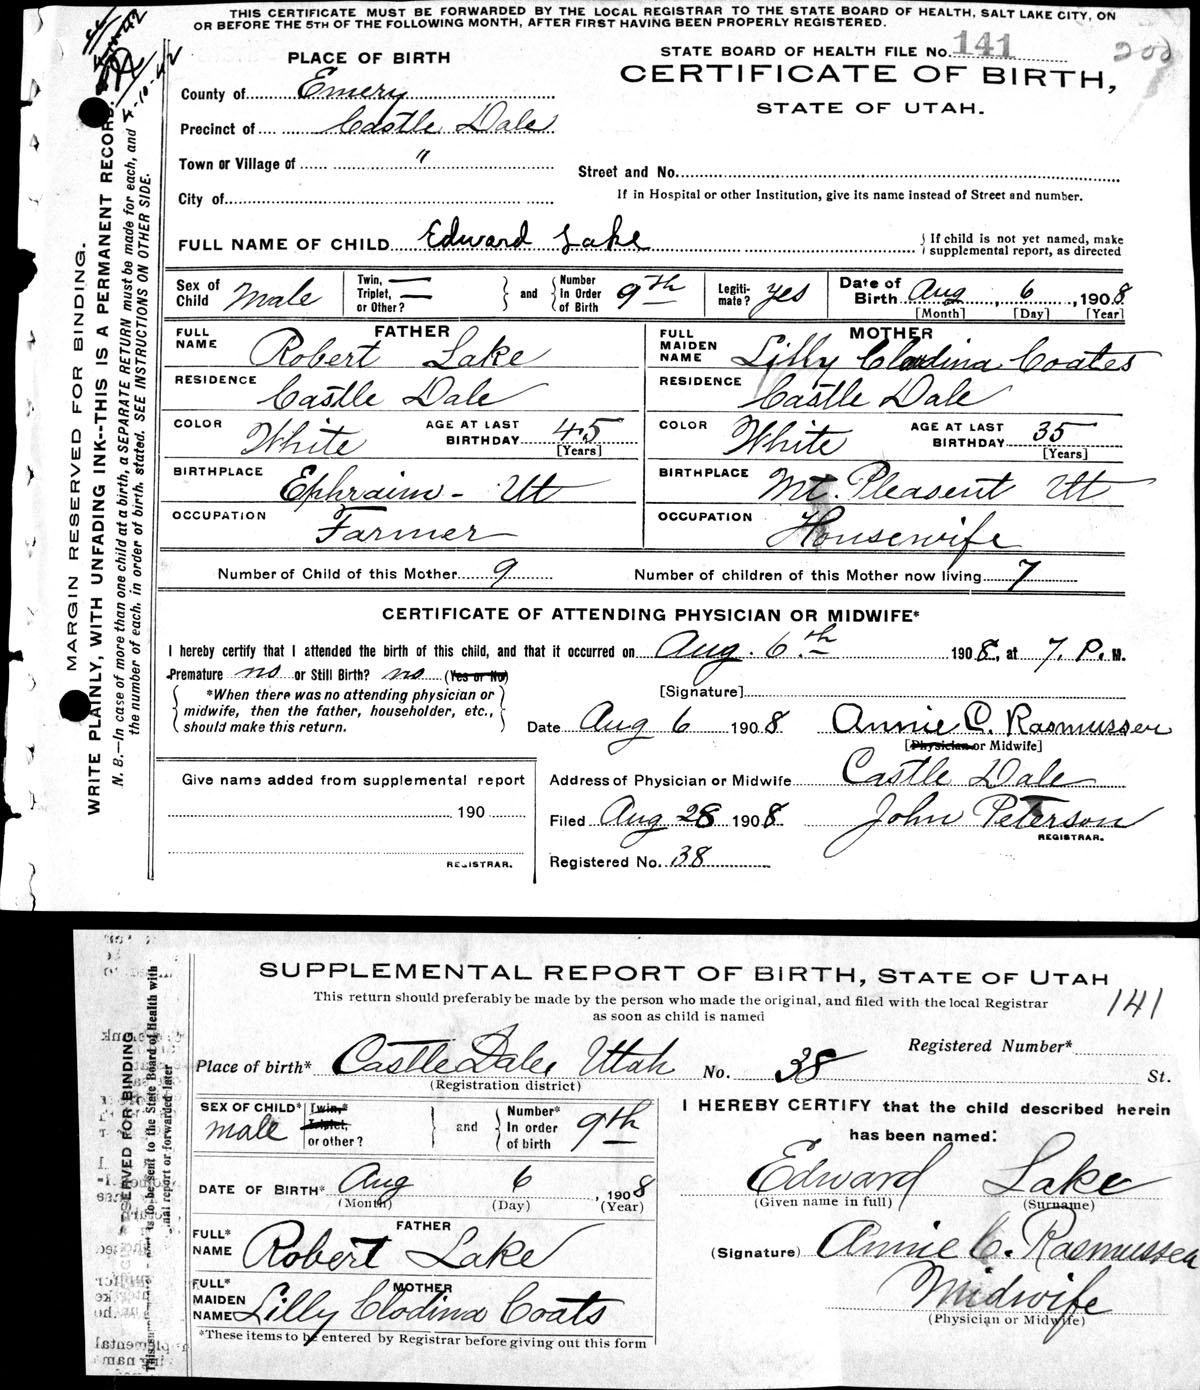 THIS CERTIFICATE MUST BE FORWARDED BY THE LOCAL REGISTRAR TO THE STATE BOARD OF HEALTH, SALT LAKE CITY, ON
OR BEFORE THE 5TH OF THE FOLLOWING MONTH, AFTER FIRST HAVING BEEN PROPERLY REGISTERED.
MARGIN RESERVED FOR BINDING.
WRITE PLAINLY, WITH UNFADING INK--THIS IS A PERMANENT RECORD.
N. B.—In case of more than one child at a birth, a SEPARATE RETURN must be made for each, and
the number of each, in order of birth, stated. SEE INSTRUCTIONS ON OTHER SIDE.
PLACE OF BIRTH
STATE BOARD OF HEALTH FILE No. 141
200
CERTIFICATE OF BIRTH,
STATE OF UTAH.
County of Emery
Precinct of Castle Dale
Town or Village of "
Street and No.
City of
If in Hospital or other Institution, give its name instead of Street and number.
FULL NAME OF CHILD Edward Lake
If child is not yet named, make
supplemental report, as directed
Sex of Child Male
Twin, —
Triplet, —
or Other?
and
Number In Order of Birth 9th
Legiti-mate? yes
Date of Birth Aug, 6, 1908
[Month] [Day] [Year]
FATHER
FULL NAME Robert Lake
RESIDENCE Castle Dale
COLOR White AGE AT LAST BIRTHDAY 45
[Years]
BIRTHPLACE Ephraim - Ut
OCCUPATION Farmer
MOTHER
FULL MAIDEN NAME Lilly Clodina Coates
RESIDENCE Castle Dale
COLOR White AGE AT LAST BIRTHDAY 35
[Years]
BIRTHPLACE Mt. Pleasent Ut
OCCUPATION Housewife
Number of Child of this Mother 9 Number of children of this Mother now living 7
CERTIFICATE OF ATTENDING PHYSICIAN OR MIDWIFE*
I hereby certify that I attended the birth of this child, and that it occurred on Aug. 6th 1908, at 7. P. M.
Premature no or Still Birth? no (Yes or No)
*When there was no attending physician or
midwife, then the father, householder, etc.,
should make this return.
[Signature]
Date Aug 6 1908 Annie C. Rasmussen
[Physician or Midwife]
Give name added from supplemental report
190
REGISTRAR.
Address of Physician or Midwife Castle Dale
Filed Aug 28 1908 John Peterson
REGISTRAR.
Registered No. 38
SUPPLEMENTAL REPORT OF BIRTH, STATE OF UTAH
This return should preferably be made by the person who made the original, and filed with the local Registrar
as soon as child is named
141
Registered Number*
Place of birth* Castle Dale, Uttah No. 38 St.
(Registration district)
SEX OF CHILD* male
Twin,*
Triplet,
or other?
and
Number* In order of birth 9th
DATE OF BIRTH* Aug 6, 1908
(Month) (Day) (Year)
FATHER
FULL* NAME Robert Lake
MOTHER
FULL* MAIDEN NAME Lilly Clodina Coats
*These items to be entered by Registrar before giving out this form
I HEREBY CERTIFY that the child described herein
has been named:
Edward Lake
(Given name in full) (Surname)
(Signature) Annie C. Rasmussen
Midwife
(Physician or Midwife)
RESERVED FOR BINDING
is to be sent to the State Board of Health with
report or forwarded later